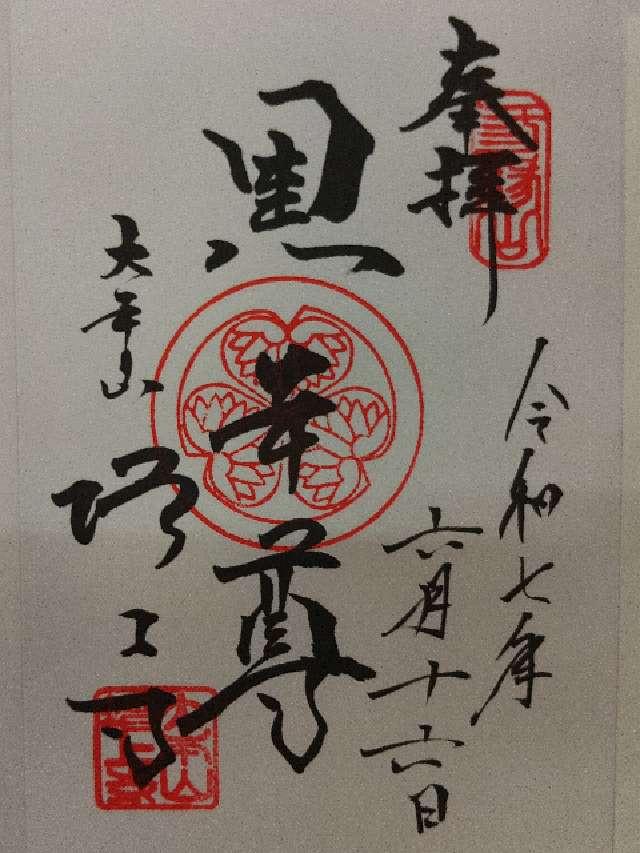 奉拝
三縁山
令和七年
六月十六日
黒本尊
大本山
増上寺